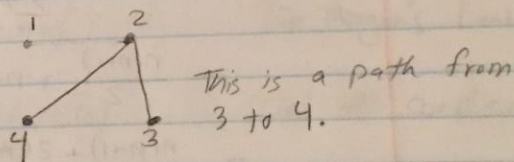 1
2
This is a path from
3 to 4.
4
3